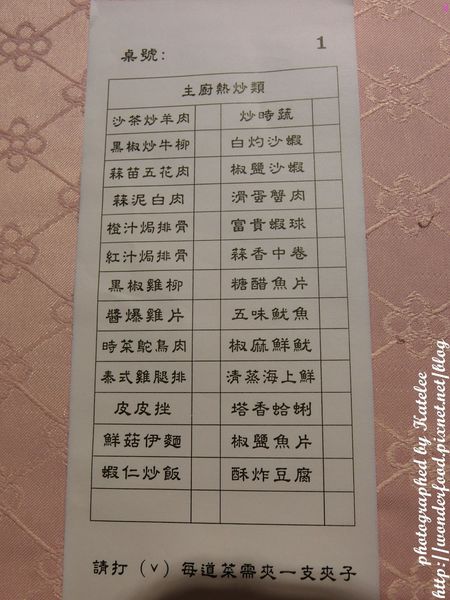 1
桌號：
主廚熱炒類
沙茶炒羊肉 炒時蔬
黑椒炒牛柳 白灼沙蝦
蒜苗五花肉 椒鹽沙蝦
蒜泥白肉 滑蛋蟹肉
橙汁焗排骨 富貴蝦球
紅汁焗排骨 蒜香中卷
黑椒雞柳 糖醋魚片
醬爆雞片 五味魷魚
時菜鴕鳥肉 椒麻鮮魷
泰式雞腿排 清蒸海上鮮
皮皮挫 塔香蛤蜊
鮮菇伊麵 椒鹽魚片
蝦仁炒飯 酥炸豆腐
請打（v）每道菜需夾一支夾子
photographed by Katelee
http://wonderfood.pixnet.net/blog